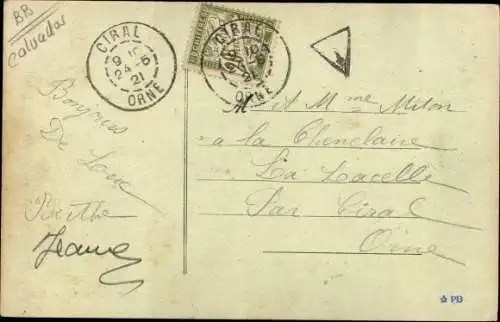 BB
Calvados
CIRAL
9 15
24 - 5
21
ORNE
CIRAL
21
ORNE
Bonjour
De Tous
Berthe
Jeanne
A Mme Milon
a la
La Lacelle
Par Ciral
Orne
PB